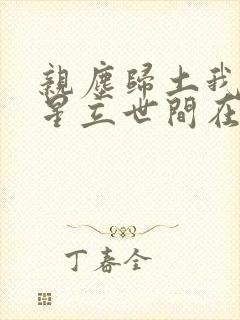 親塵歸土我
星立世間在
丁春全